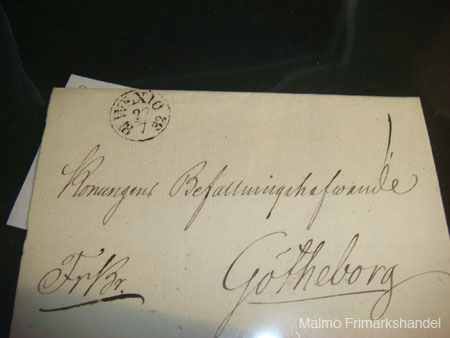 WEXIÖ
27
7
Konungens Befallningshafwande
FrBr.
Götheborg
Malmö Frimärkshandel